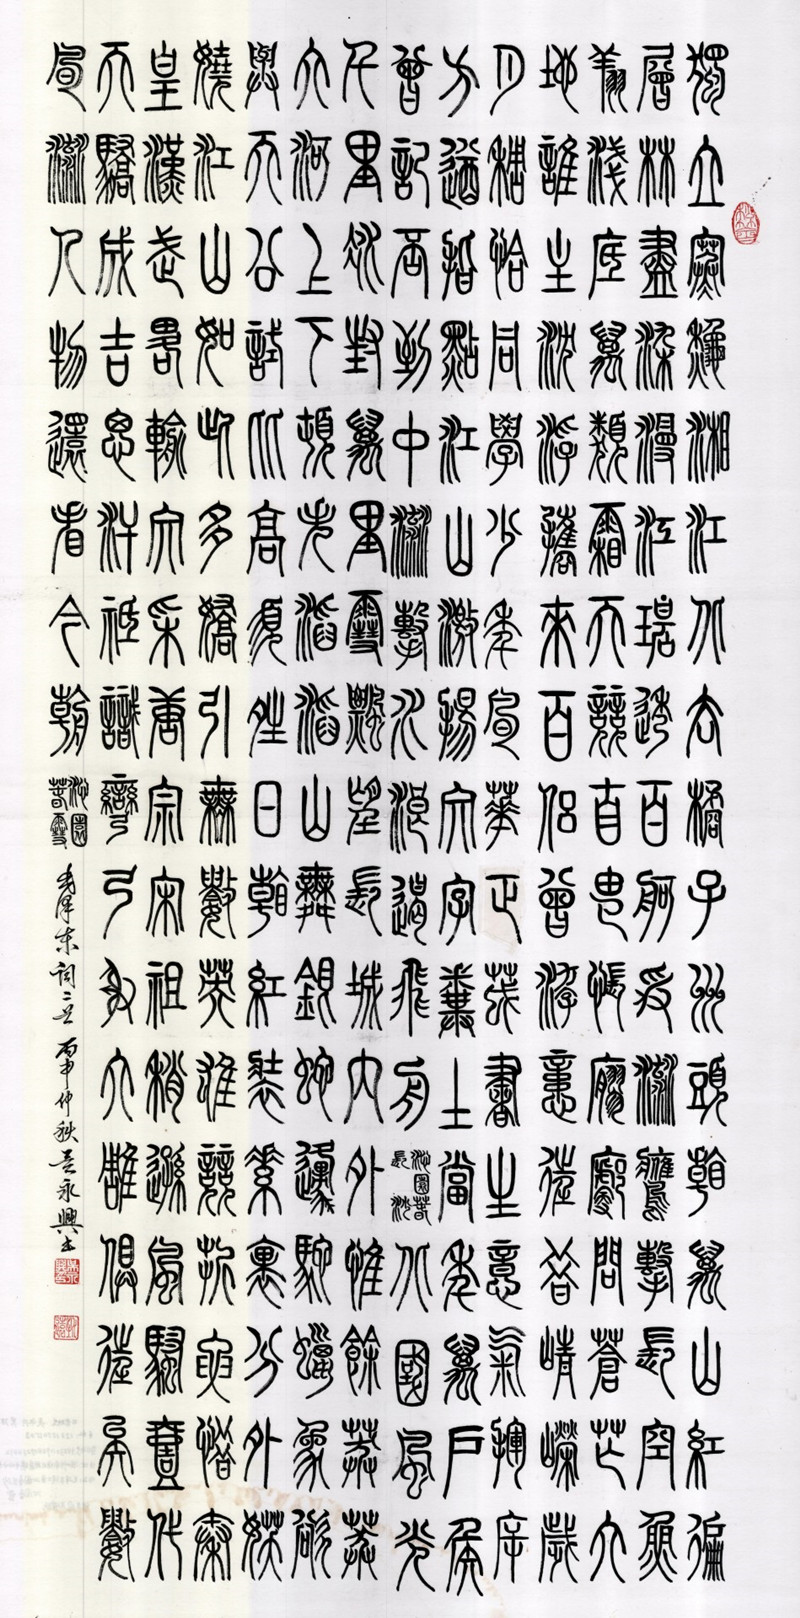 獨立寒穐湘江北去橘子洲頭看萬山紅徧
層林盡染漫江碧透百舸爭流鷹擊長空魚
翔淺底萬類霜天競自由悵寥廓問蒼茫大
地誰主沈浮攜來百侶曾游憶往昔崢嶸歲
月稠恰同學少年風華正茂書生意氣揮斥
方遒指點江山激揚文字糞土當年萬戶侯
曾記否到中流擊水浪遏飛舟沁園春長沙北國風光
千里冰封萬里雪飄望長城內外惟餘莽莽
大河上下頓失滔滔山舞銀蛇原馳蠟象欲
與天公試比高須晴日看紅裝素裹分外妖
嬈江山如此多嬌引無數英雄競折腰惜秦
皇漢武略輸文采唐宗宋祖稍遜風騷一代
天驕成吉思汗祇識彎弓射大雕俱往矣數
風流人物還看今朝沁園春雪毛澤東詞二首丙申仲秋吳永興書